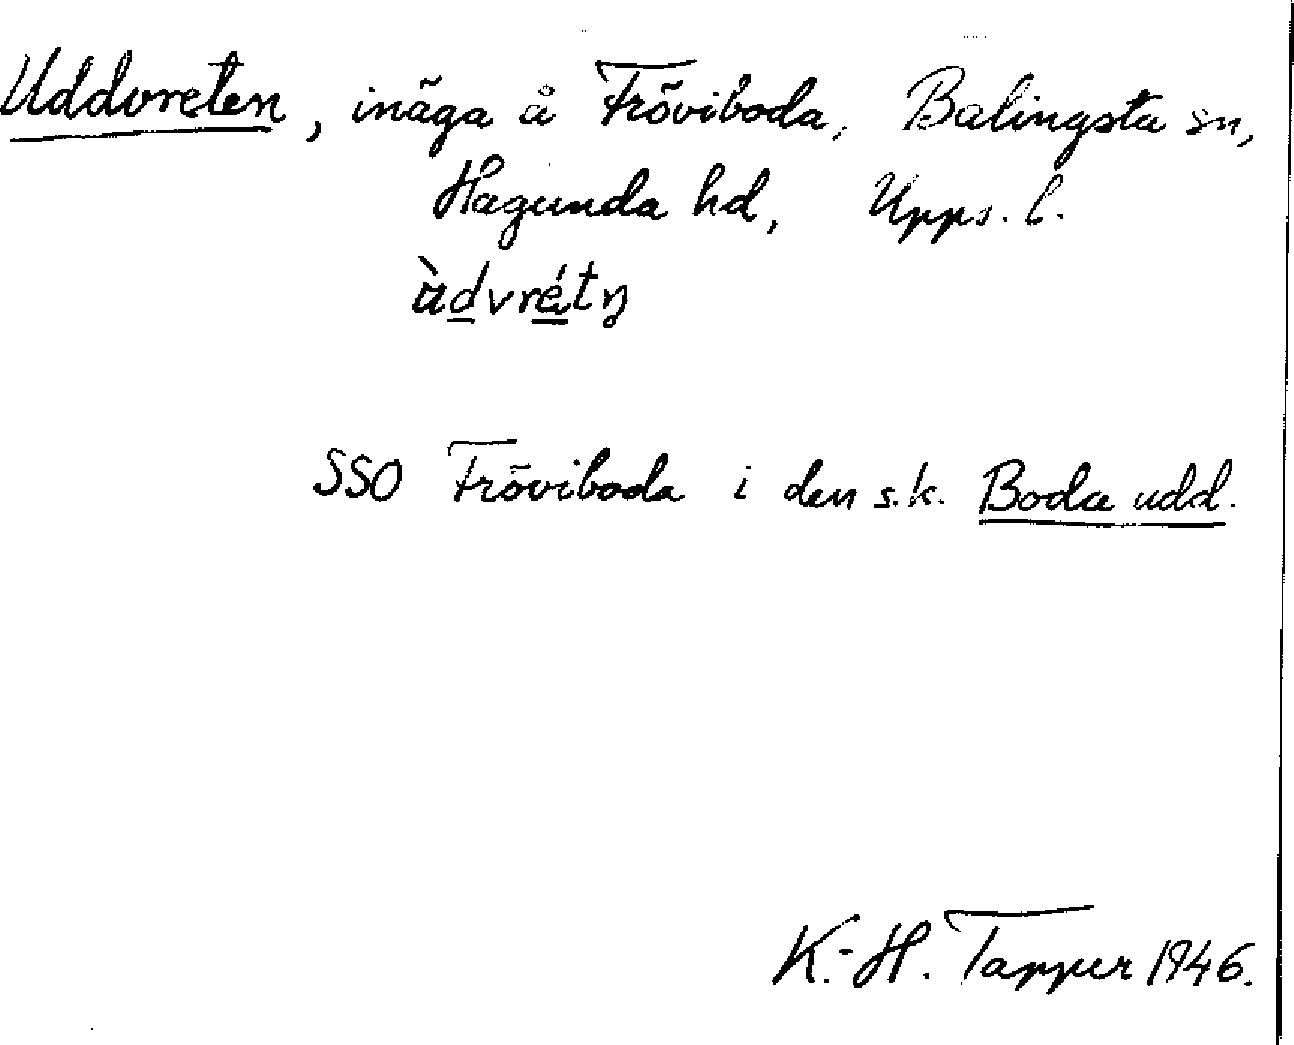 Uddvreten, inäga å Fröviboda, Balingsta sn,
Hagunda hd, Upps. l.
SSO Fröviboda i den s.k. Boda udd.
K.-H. Tapper 1946.